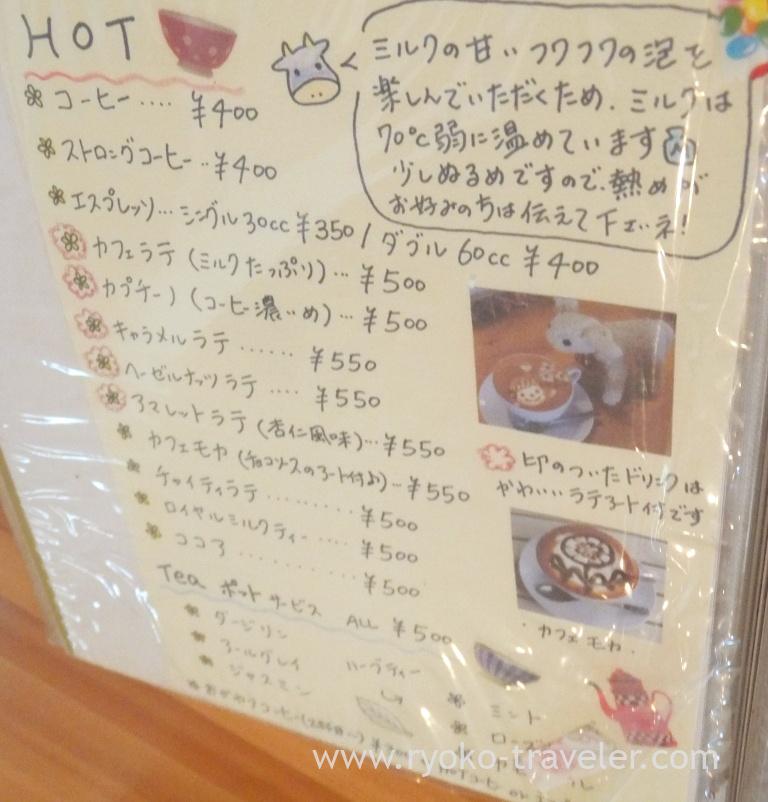 HOT
ミルクの甘いフワフワの泡を
楽しんでいただくため、ミルクは
70℃弱に温めています
少しぬるめですので、熱めが
お好みの方は伝えて下さいネ!
コーヒー.... ¥400
ストロングコーヒー..¥400
エスプレッソ... シングル30cc ¥350 / ダブル 60cc ¥400
カフェラテ (ミルクたっぷり)... ¥500
カプチーノ (コーヒー濃いめ)... ¥500
キャラメルラテ ...... ¥550
ヘーゼルナッツラテ .... ¥550
アマレットラテ (杏仁風味)...¥550
カフェモカ (チョコソースのアート付き)..¥550
チャイティラテ ......... ¥500
ロイヤルミルクティー .... ¥500
ココア .......... ¥500
印のついたドリンクは
かわいいラテアート付です
・カフェモカ・
Tea ポットサービス ALL ¥500
ダージリン
アールグレイ
ジャスミン
ハーブティー
ミント
おかわりコーヒー(2杯目〜)
www.ryoko-traveler.com